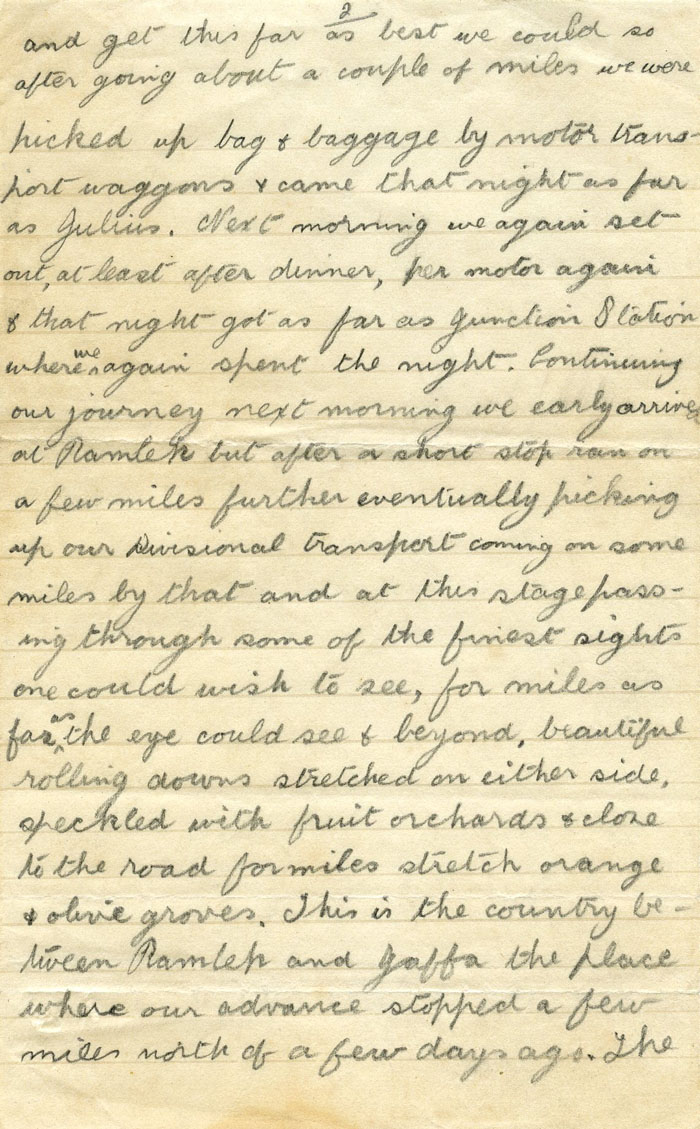 2
and get this far as best we could so
after going about a couple of miles we were
picked up bag & baggage by motor trans-
port waggons & came that night as far
as Julius. Next morning we again set
out, at least after dinner, per motor again
& that night got as far as Junction Station
where we again spent the night. Continuing
our journey next morning we early arrived
at Ramleh but after a short stop ran on
a few miles further eventually picking
up our Divisional transport coming on some
miles by that and at this stage pass-
ing through some of the finest sights
one could wish to see, for miles as
far as the eye could see & beyond, beautiful
rolling downs stretched on either side,
speckled with fruit orchards & close
to the road for miles stretch orange
& olive groves. This is the country be-
tween Ramleh and Jaffa the place
where our advance stopped a few
miles north of a few days ago. The